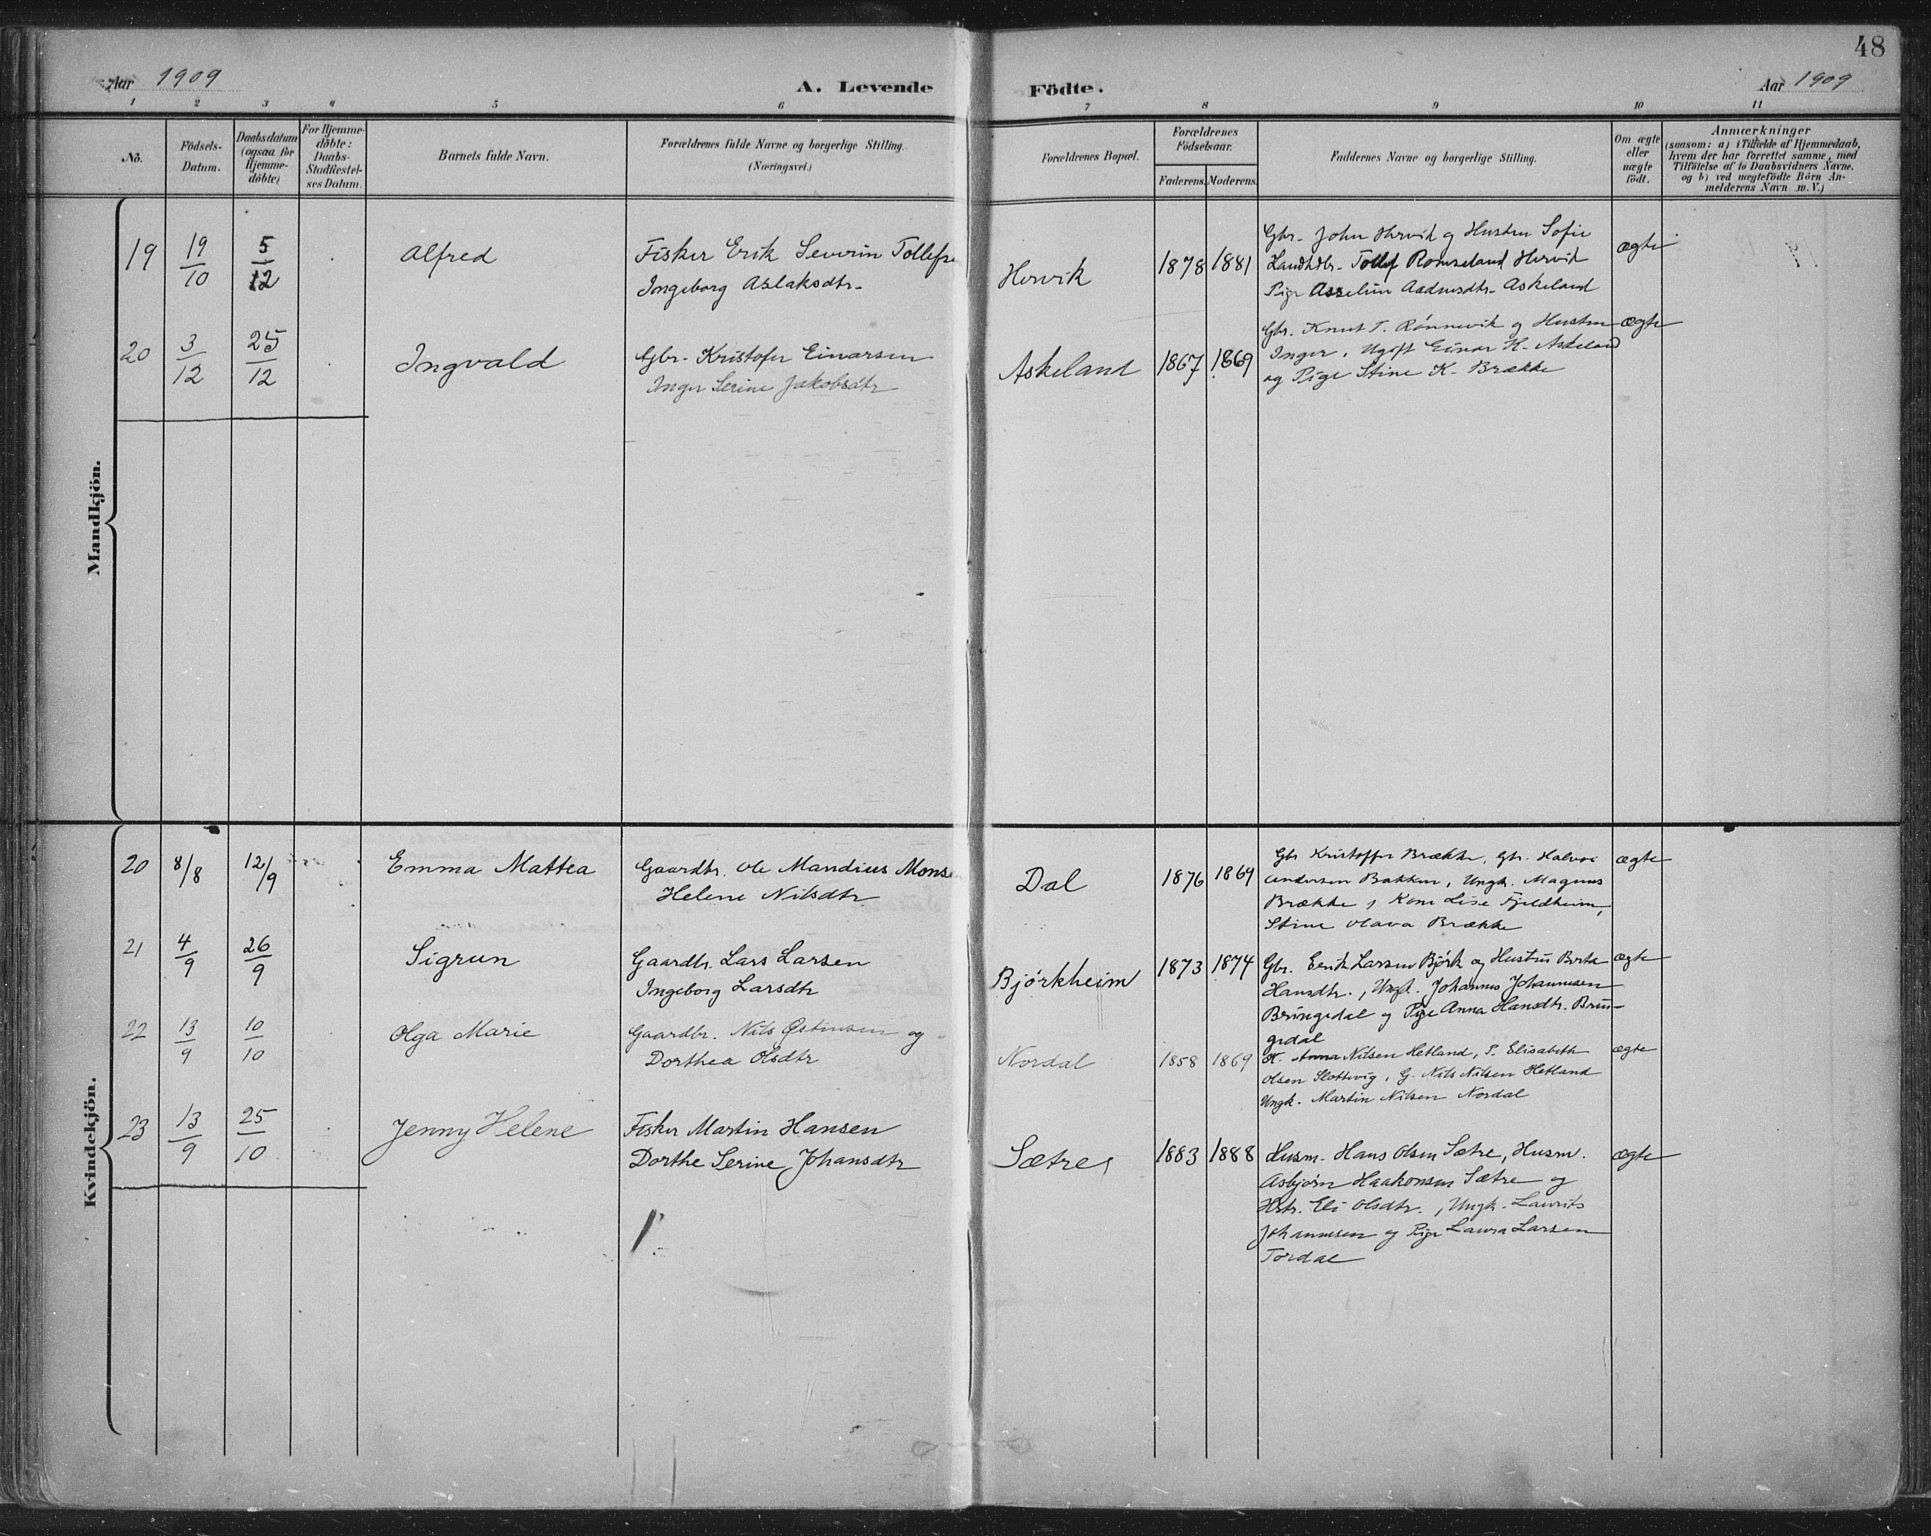 48
Aar 1909
A. Levende Födte.
Aar 1909
1 2 3 4 5 6 7 8 9 10 11
No.
Födsels-Datum.
Daabsdatum (ogsaa for Hjemme-döbte)
For Hjemme-döbte: Daabs-Stadfæstel-ses Datum.
Barnets fulde Navn.
Forældrenes fulde Navne og borgerlige Stilling.
(Næringsvei.)
Forældrenes Bopæl.
Forældrenes Födselsaar.
Faderens. Moderens.
Faddernes Navne og borgerlige Stilling.
Om ægte eller uægte födt.
Anmærkninger
(saasom: a) i Tilfælde af Hjemmedaab,
hvem der har forrettet samme, med
Tilföielse af to Daabsvidners Navne,
og b) ved uægtefödte Börn An-
melderens Navn m. V.)
Mandkjön.
19 19/10 5/12 Alfred
Fisker Erik Severin Tollefs
Ingeborg Aslaksdtr.
Hervik 1878 1881
Gbr. John Hervik og Hustru Sofie
Landhdlr. Tollef Romseland Hervik
Pige Asseline Aadnesdtr. Askeland
ægte
20 3/12 25/12 Ingvald
Gbr. Kristofer Einarsen
Inger Serine Jakobsdtr
Askeland 1867 1869
Gbr. Knut T. Rönnevik og Hustru
Inger, Ugift Einar K. Askeland
og Pige Stine K. Brække
ægte
Kvindekjön.
20 8/8 12/9 Emma Mattea
Gaardbr. Ole Mandius Mons
Helene Nilsdtr
Dal 1876 1869
Gbr Kristoffer Brække, Gbr. Halvor
Andersen Bakken, Ungk. Magnus
Brække, Kone Lise Fjeldheim,
Stine Olava Brække
ægte
21 4/9 26/9 Sigrun
Gaardbr. Lars Larsen
Ingeborg Larsdtr
Bjørkheim 1873 1874
Gbr. Erik Larsen Bjørk og Hustru Berta
Hansdtr., Ungk. Johannes Johannesen
Bringedal og Pige Anna Hansdtr. Brin-
gedal
ægte
22 13/9 10/10 Olga Marie
Gaardbr. Nils Østensen og
Dorthea Olsdtr
Nordal 1858 1869
K. Anna Nilsen Hetland, P. Elisabeth
Olsen Slottvig, G. Nils Nilsen Hetland
Ungk. Martin Nilsen Nordal
ægte
23 13/9 25/10 Jenny Helene
Fisker Martin Hansen
Dorthe Serine Johansdtr
Sætre 1883 1888
Husm. Hans Olsen Sætre, Husm.
Asbjørn Haakonsen Sætre og
Hstr. Eli Olsdtr., Ungk. Laurits
Johannesen og Pige Laura Larsen
Tordal
ægte